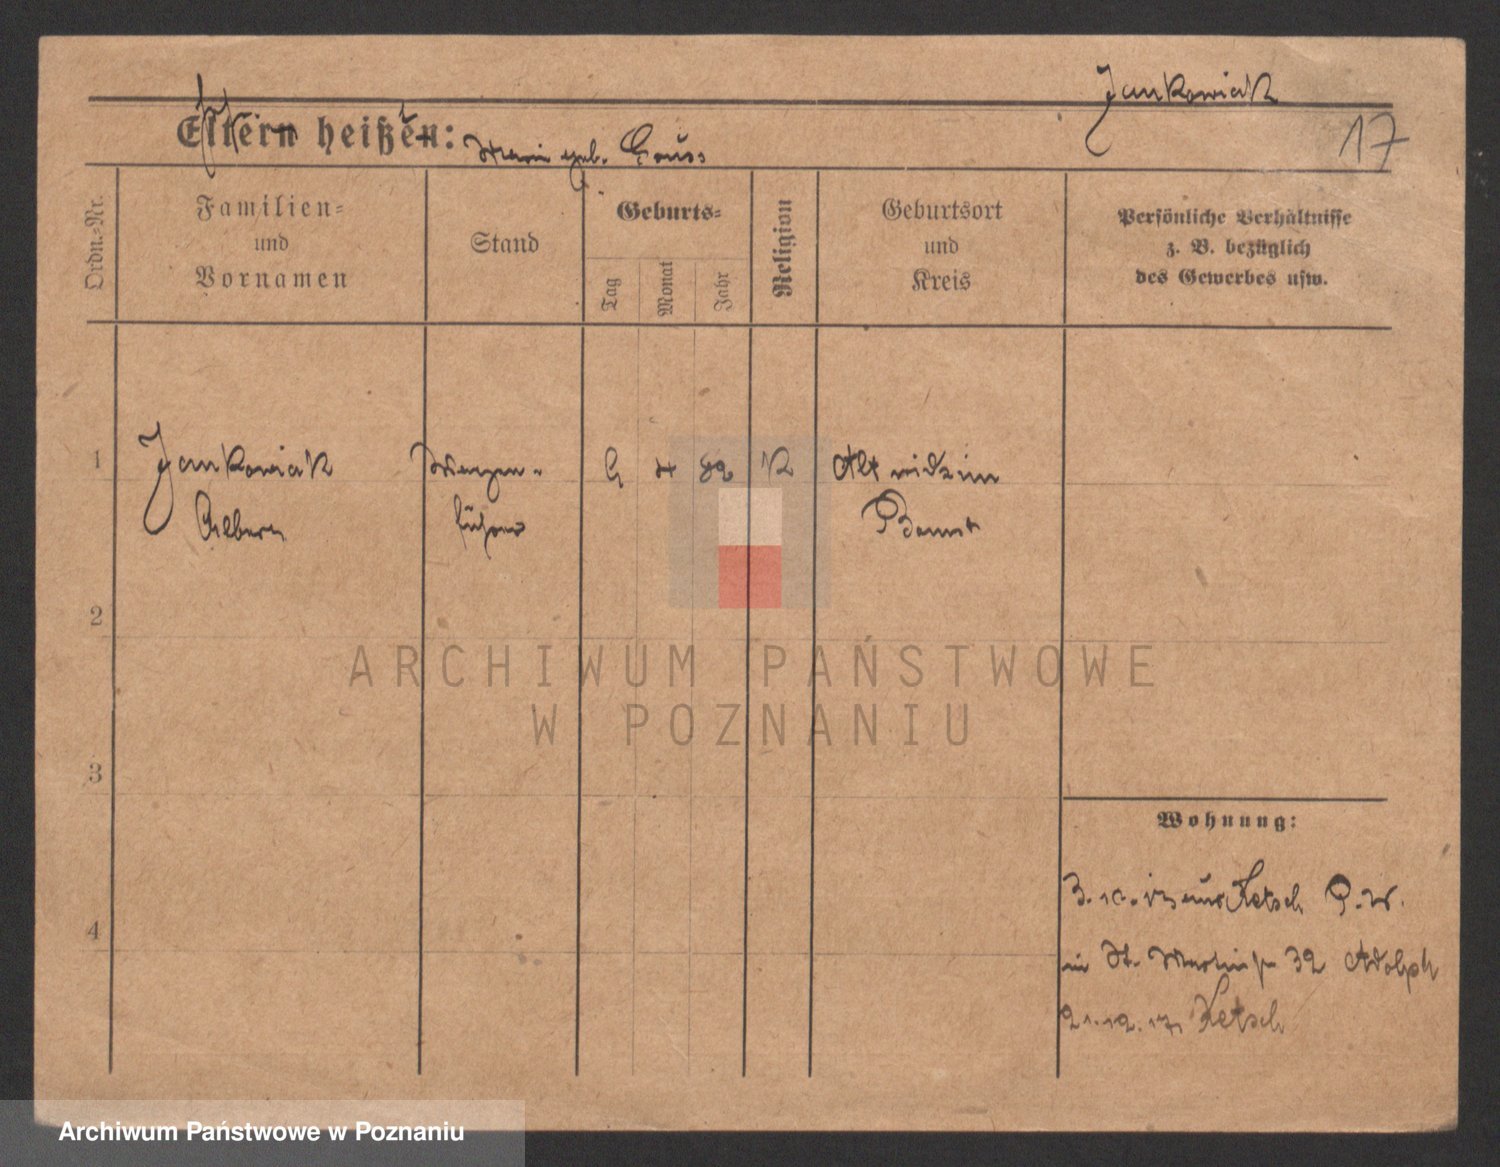 Jankowiak
17
Eltern heißen:
Marie geb.
Ordn.-Nr.
Familien-
und
Vornamen
Stand
Geburts-
Tag
Monat
Jahr
Religion
Geburtsort
und
Kreis
Persönliche Verhältnisse
z. B. bezüglich
des Gewerbes usw.
1
Jankowiak
Albert
4
82
K
Altwidzim
Bomst
2
ARCHIWUM PAŃSTWOWE
W POZNANIU
3
Wohnung:
aus Ketsch P. W.
in St. Martinstr 32 Adolph
21.12.17 Ketsch
4
Archiwum Państwowe w Poznaniu